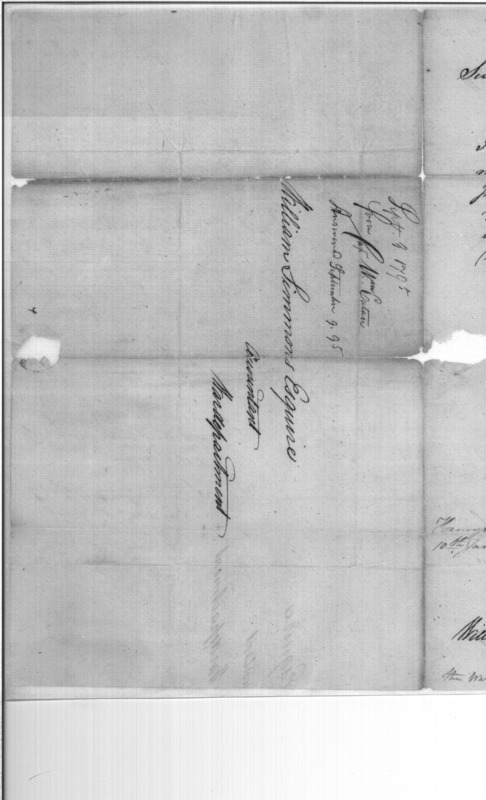 Sept. 8 1795
from Cap Wm Eaton
Answered September 9. 95
William Simmons Esquire
Accountant
War department
10th Jan
Will
the War